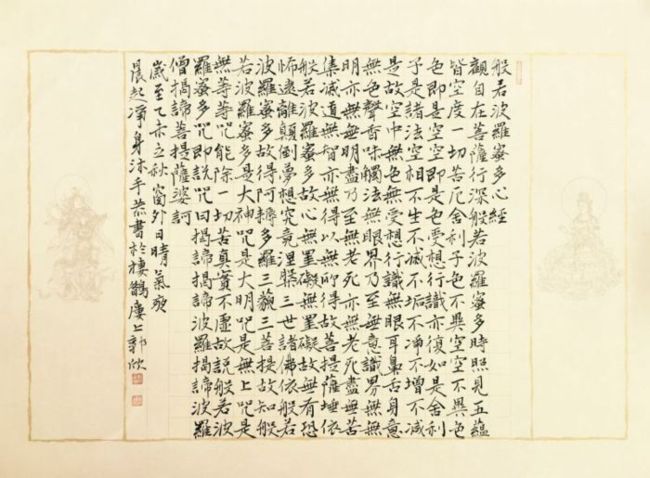 般若波羅蜜多心經
觀自在菩薩行深般若波羅蜜多時照見五蘊
皆空度一切苦厄舍利子色不異空空不異色
色即是空空即是色受想行識亦復如是舍利
子是諸法空相不生不滅不垢不淨不增不減
是故空中無色無受想行識無眼耳鼻舌身意
無色聲香味觸法無眼界乃至無意識界無無
明亦無無明盡乃至無老死亦無老死盡無苦
集滅道無智亦無得以無所得故菩提薩埵依
般若波羅蜜多故心無罣礙無罣礙故無有恐
怖遠離顛倒夢想究竟涅槃三世諸佛依般若
波羅蜜多故得阿耨多羅三藐三菩提故知般
若波羅蜜多是大神咒是大明咒是無上咒是
無等等咒能除一切苦真實不虛故說般若波
羅蜜多咒即說咒曰揭諦揭諦波羅揭諦波羅
僧揭諦菩提薩婆訶
歲至乙亥立秋窗外日晴氣爽
晨起淨身沐手恭書於棲鶴廔上郭欣